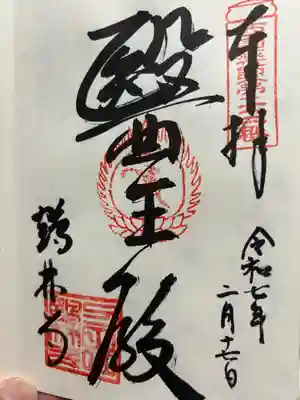 奉拝
令和七年
二月十七日
醫王殿
鶴林寺